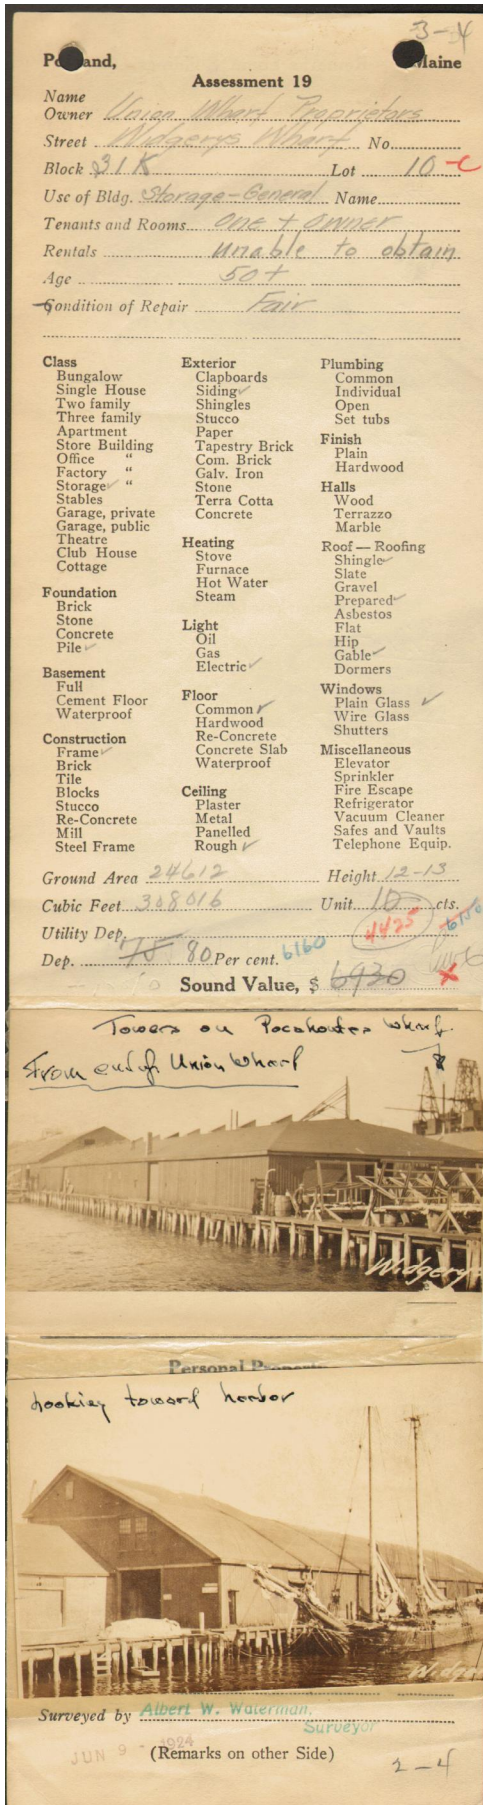 3-4
Portland, Maine
Assessment 19
Name
Owner Union Wharf Proprietors
Street Widgerys Wharf No.
Block 31K Lot 10-C
Use of Bldg. Storage-General Name
Tenants and Rooms One + Owner
Rentals unable to obtain
Age 50+
Condition of Repair Fair
Class
Bungalow
Single House
Two family
Three family
Apartment
Store Building
Office "
Factory "
Storage ✓ "
Stables
Garage, private
Garage, public
Theatre
Club House
Cottage
Foundation
Brick
Stone
Concrete
Pile ✓
Basement
Full
Cement Floor
Waterproof
Construction
Frame ✓
Brick
Tile
Blocks
Stucco
Re-Concrete
Mill
Steel Frame
Exterior
Clapboards
Siding ✓
Shingles
Stucco
Paper
Tapestry Brick
Com. Brick
Galv. Iron
Stone
Terra Cotta
Concrete
Heating
Stove
Furnace
Hot Water
Steam
Light
Oil
Gas
Electric ✓
Floor
Common ✓
Hardwood
Re-Concrete
Concrete Slab
Waterproof
Ceiling
Plaster
Metal
Panelled
Rough ✓
Plumbing
Common
Individual
Open
Set tubs
Finish
Plain
Hardwood
Halls
Wood
Terrazzo
Marble
Roof — Roofing
Shingle ✓
Slate
Gravel
Prepared ✓
Asbestos
Flat
Hip
Gable ✓
Dormers
Windows
Plain Glass ✓
Wire Glass
Shutters
Miscellaneous
Elevator
Sprinkler
Fire Escape
Refrigerator
Vacuum Cleaner
Safes and Vaults
Telephone Equip.
Ground Area 24612 Height 12-13
Cubic Feet 308016 Unit 10 cts.
Utility Dep. 4425
Dep. 75 80 Per cent. 6160
Sound Value, $ 6930 x
Towers on Pocahontas Wharf
From end of Union Wharf
Widgerys
Personal Property
Looking toward harbor
Widge
Surveyed by Albert W. Waterman,
Surveyor
JUN 9 - 1924
(Remarks on other Side)
2-4